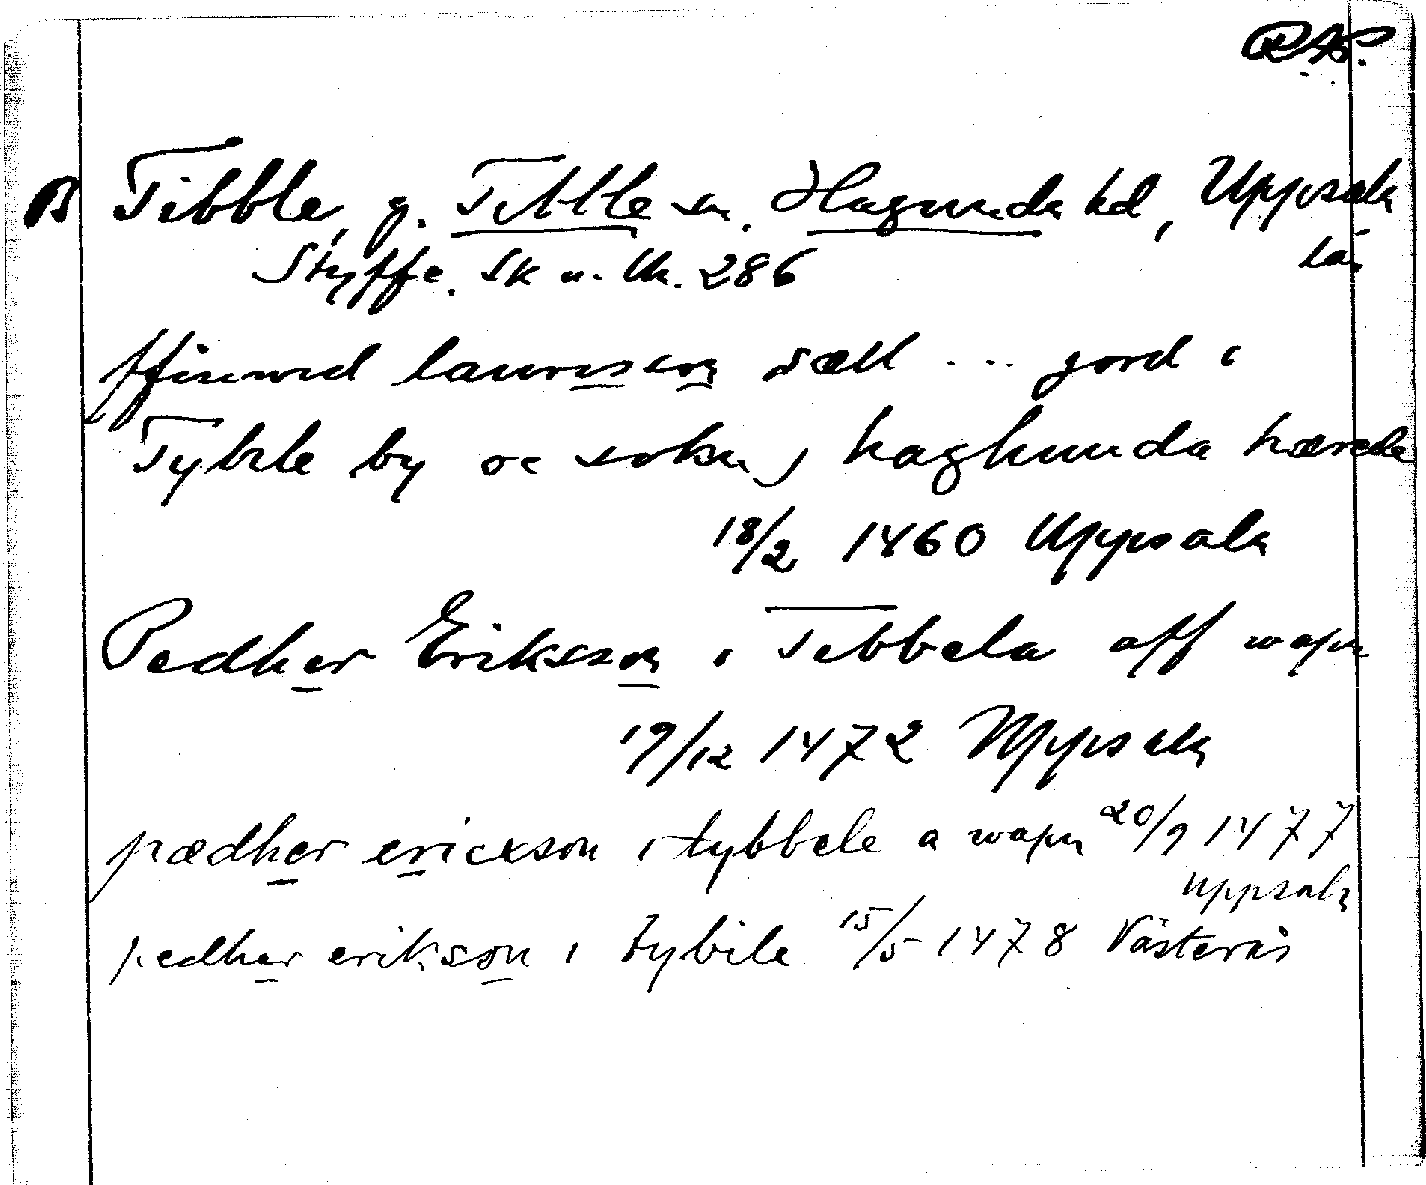 RAP.
B Tibble, g. Tibble sn. Hagunda hd, Uppsala
län
Styffe. Sk u. Un. 286
ffinwid laurisson sælt ... jord i
Tyble by oc sokn j haghunda hærede
18/2 1460 Uppsala
Pedher Eriksson i Tibbela aff wapn
19/12 1472 Uppsala
pædher ericxson i tybbele a wapn 20/9 1477
Uppsala
pedher erikson i tybile 15/5 1478 Västerås